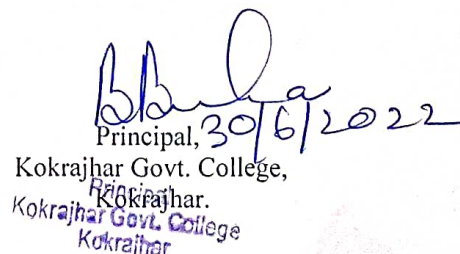 Principal, 30/6/2022
Kokrajhar Govt. College,
Kokrajhar.
Principal
Kokrajhar Govt. College
Kokrajhar